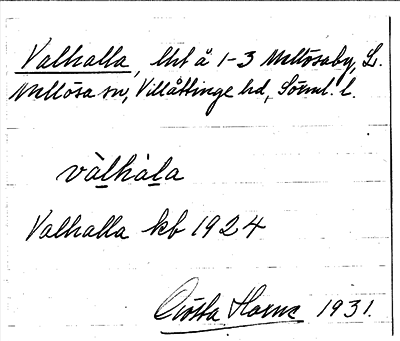 Valhalla, lht å 1-3 Mellösaby, L.
Mellösa sn, Villåttinge hd, Söderml. l.
vàlhàla
Valhalla kb 1924
Gösta Horne 1931.